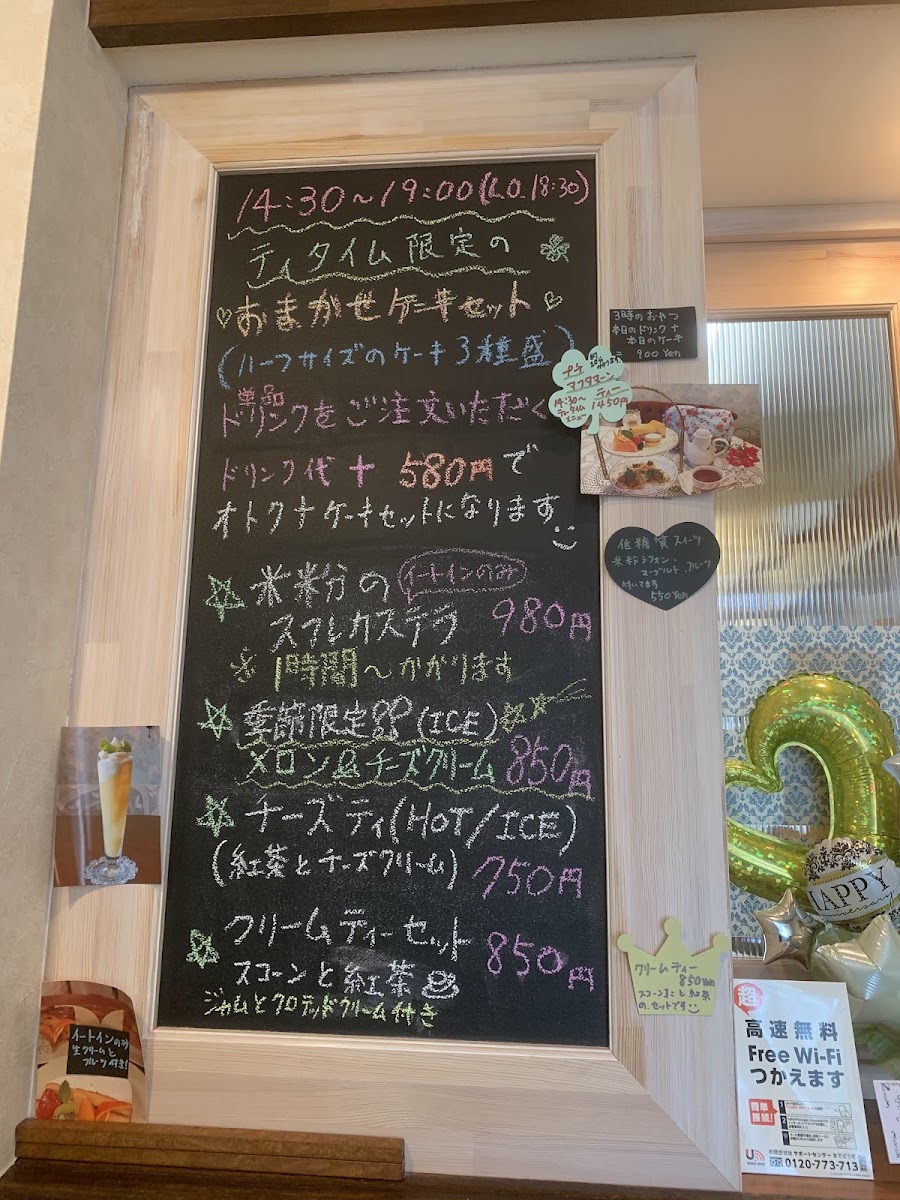 14:30〜19:00(L.O.18:30)
ティタイム限定の
おまかせケーキセット
(ハーフサイズのケーキ3種盛)
単品
ドリンクをご注文いただく
ドリンク代+580円で
オトクナケーキセットになります
米粉分の イートインのみ
スフレカステラ 980円
1時間〜かかります
季節限定(ICE)
メロン&チーズクリーム 850円
チーズティ(HOT/ICE)
(紅茶とチーズクリーム) 750円
クリームティーセット
850円
スコーンと紅茶
ジャムとクロテッドクリーム付き
3時のおやつ
本日のドリンク+
本日のケーキ
= 900Yen
プチ
アフタヌーン
ティー
14:30〜
1450円
ティータイム
メニュー
低糖質スイーツ
米粉シフォン、
ヨーグルト、フルーツ
付いてます
550Yen
クリームティー
850Yen
スコーン1こと紅茶
の、セットです
イートインのみ
生クリームと
フルーツ付き!
HAPPY
Anniversary
超
高速無料
Free Wi-Fi
つかえます
簡単
接続!
1
2
3
お問合せは サポートセンター までどうぞ
0120-773-713